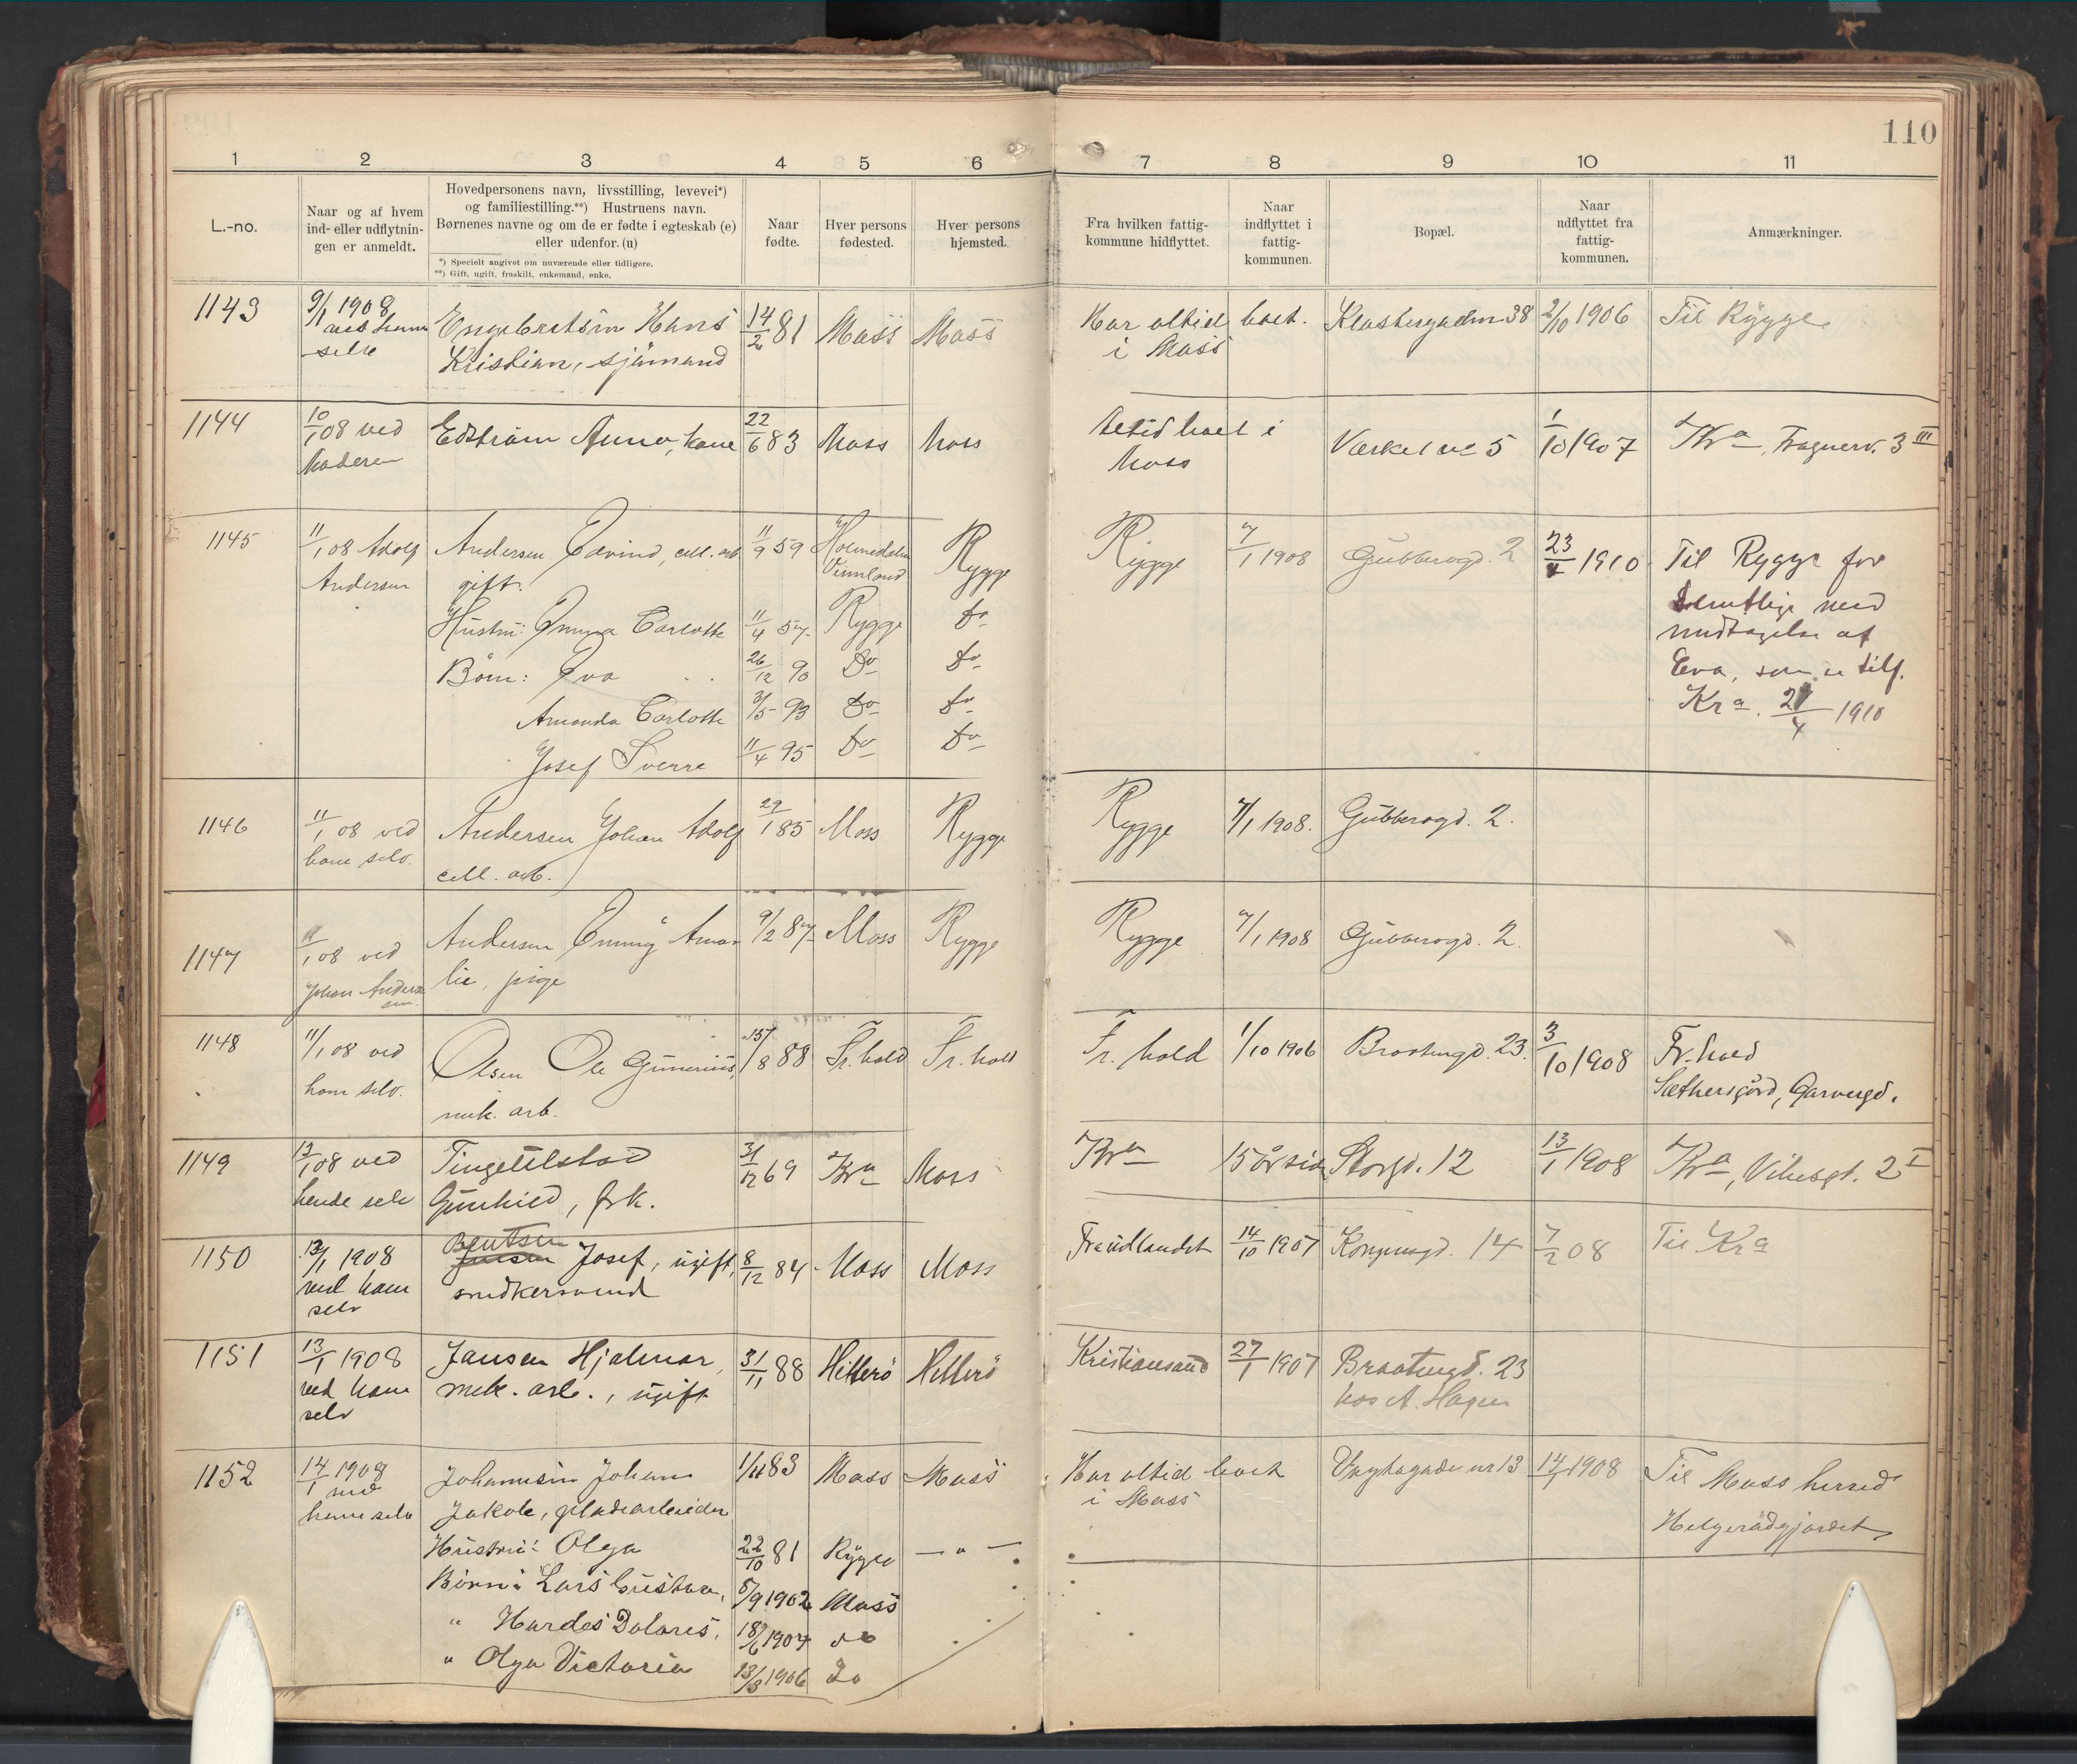 110
1 2 3 4 5 6 7 8 9 10 11
L.-no.
Naar og af hvem
ind- eller udflytnin-
gen er anmeldt.
Hovedpersonens navn, livsstilling, levevei*)
og familiestilling.**) Hustruens navn.
Børnenes navne og om de er fødte i egteskab (e)
eller udenfor. (u)
*) Specielt angivet om nuværende eller tidligere.
**) Gift, ugift, fraskilt, enkemand, enke.
Naar
fødte.
Hver persons
fødested.
Hver persons
hjemsted.
Fra hvilken fattig-
kommune hidflyttet.
Naar
indflyttet i
fattig-
kommunen.
Bopæl.
Naar
udflyttet fra
fattig-
kommunen.
Anmærkninger.
1143 9/1 1908 Engebretsen Hans 14/2 81 Moss Moss Har altid boet. Klostergaden 38 2/10 1906 Til Rygge
selv Kristian, sjømand i Moss
1144 10/1 08 ved Edström Anna, kone 22/6 83 Moss Moss Altid boet i Værket no 5 1/10 1907 Kra, Frognerv. 3 III
Moderen Moss
1145 11/1 08 Adolf Andersen Edvind, cell. arb 11/9 59 Rygge Rygge 7/1 1908 Gubberogd. 2 23/4 1910 Til Rygge for
Andersen gift. Vermland samtlige med
Hustru: Emma Carlotte 11/4 57 Rygge Do undtagelse af
Børn: Eva 26/12 90 Do Do Eva, som er tilf.
Amanda Carlotte 3/5 93 Do Do Kra. 21/4 1910
Josef Sverre 11/4 95 Do Do
1146 11/1 08 ved Andersen Johan Adolf 29/1 85 Moss Rygge Rygge 7/1 1908. Gubberogd. 2.
ham selv. cell. arb.
1147 11/1 08 ved Andersen Emmy Ama- 9/2 87 Moss Rygge Rygge 7/1 1908 Gubberogd. 2.
Johan Ander- lie, pige
sen.
1148 11/1 08 ved Olsen Ole Gunerius, 15/8 88 Fr. hald Fr. hald Fr. hald 1/10 1906 Braatengd. 23. 3/10 1908 Fr. hald
ham selv. mek. arb. Sæthersgård, Garvergd.
1149 13/1 08 ved Tingelstad 31/12 69 Kra Moss Kra 15 år siden Storgd. 12 13/1 1908 Kra, Vibesgt. 2 I
hende selv Gunhild, frk.
1150 13/1 1908 Bentsen Jensen Josef, ugift, 8/12 84 Moss Moss Trøndlandet 14/10 1907 Kongensgd. 14 7/2 08 Til Kra
ved ham snedkersvend
selv
1151 13/1 1908 Jansen Hjalmar, 31/11 88 Hitterö Hitterö Kristiansand 27/1 1907 Braatengd. 23
ved ham mek. arb., ugift hos A. Hagen
selv
1152 14/1 1908 Johannesen Johan 1/11 83 Moss Moss Har altid boet Vogtsgade nr 13 14/1 1908 Til Moss herred
ved
ham selv Jakob, pladearbeider i Moss Helgerødgjordet
Hustru: Olga 22/10 81 Rygge — " —
Børn: Lars Gustav, 5/9 1902 Moss
" Hardes Dolores, 18/6 1904 do
" Olga Victoria 13/3 1906 Do